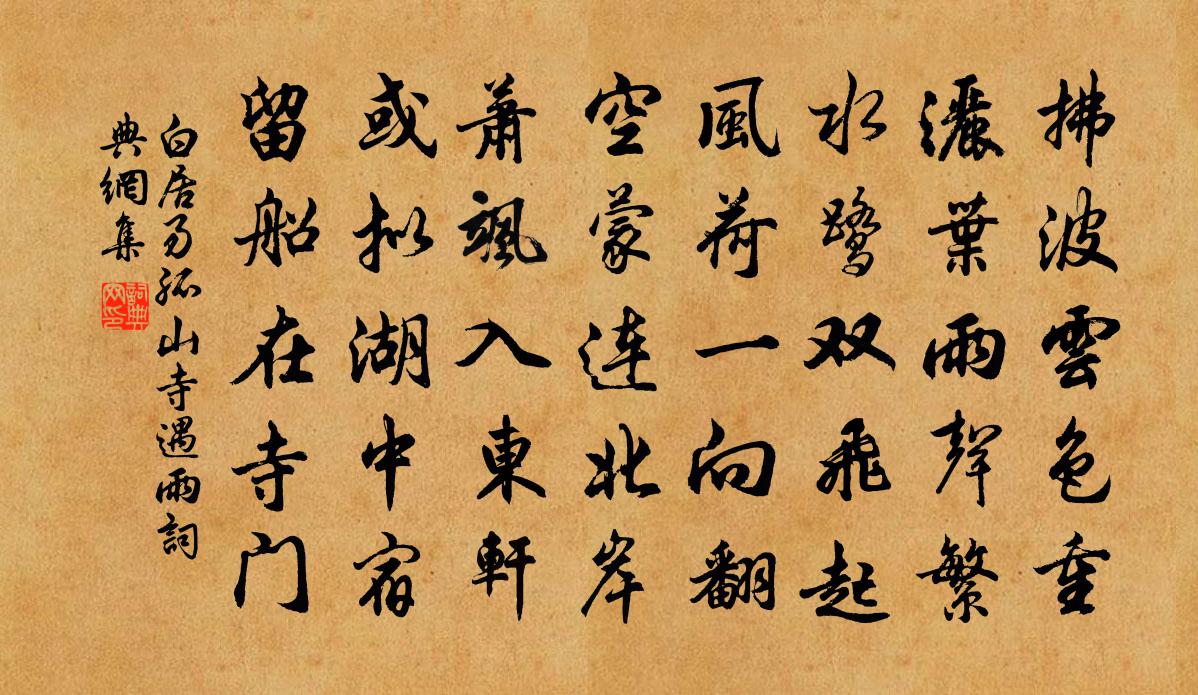 拂波雲色重
灑葉雨聲繁
水鹭双飛起
風荷一向翻
空蒙連北岸
蕭颯入東軒
或拟湖中宿
留船在寺门
白居易孤山寺遇雨詞
典網集
詞典网印